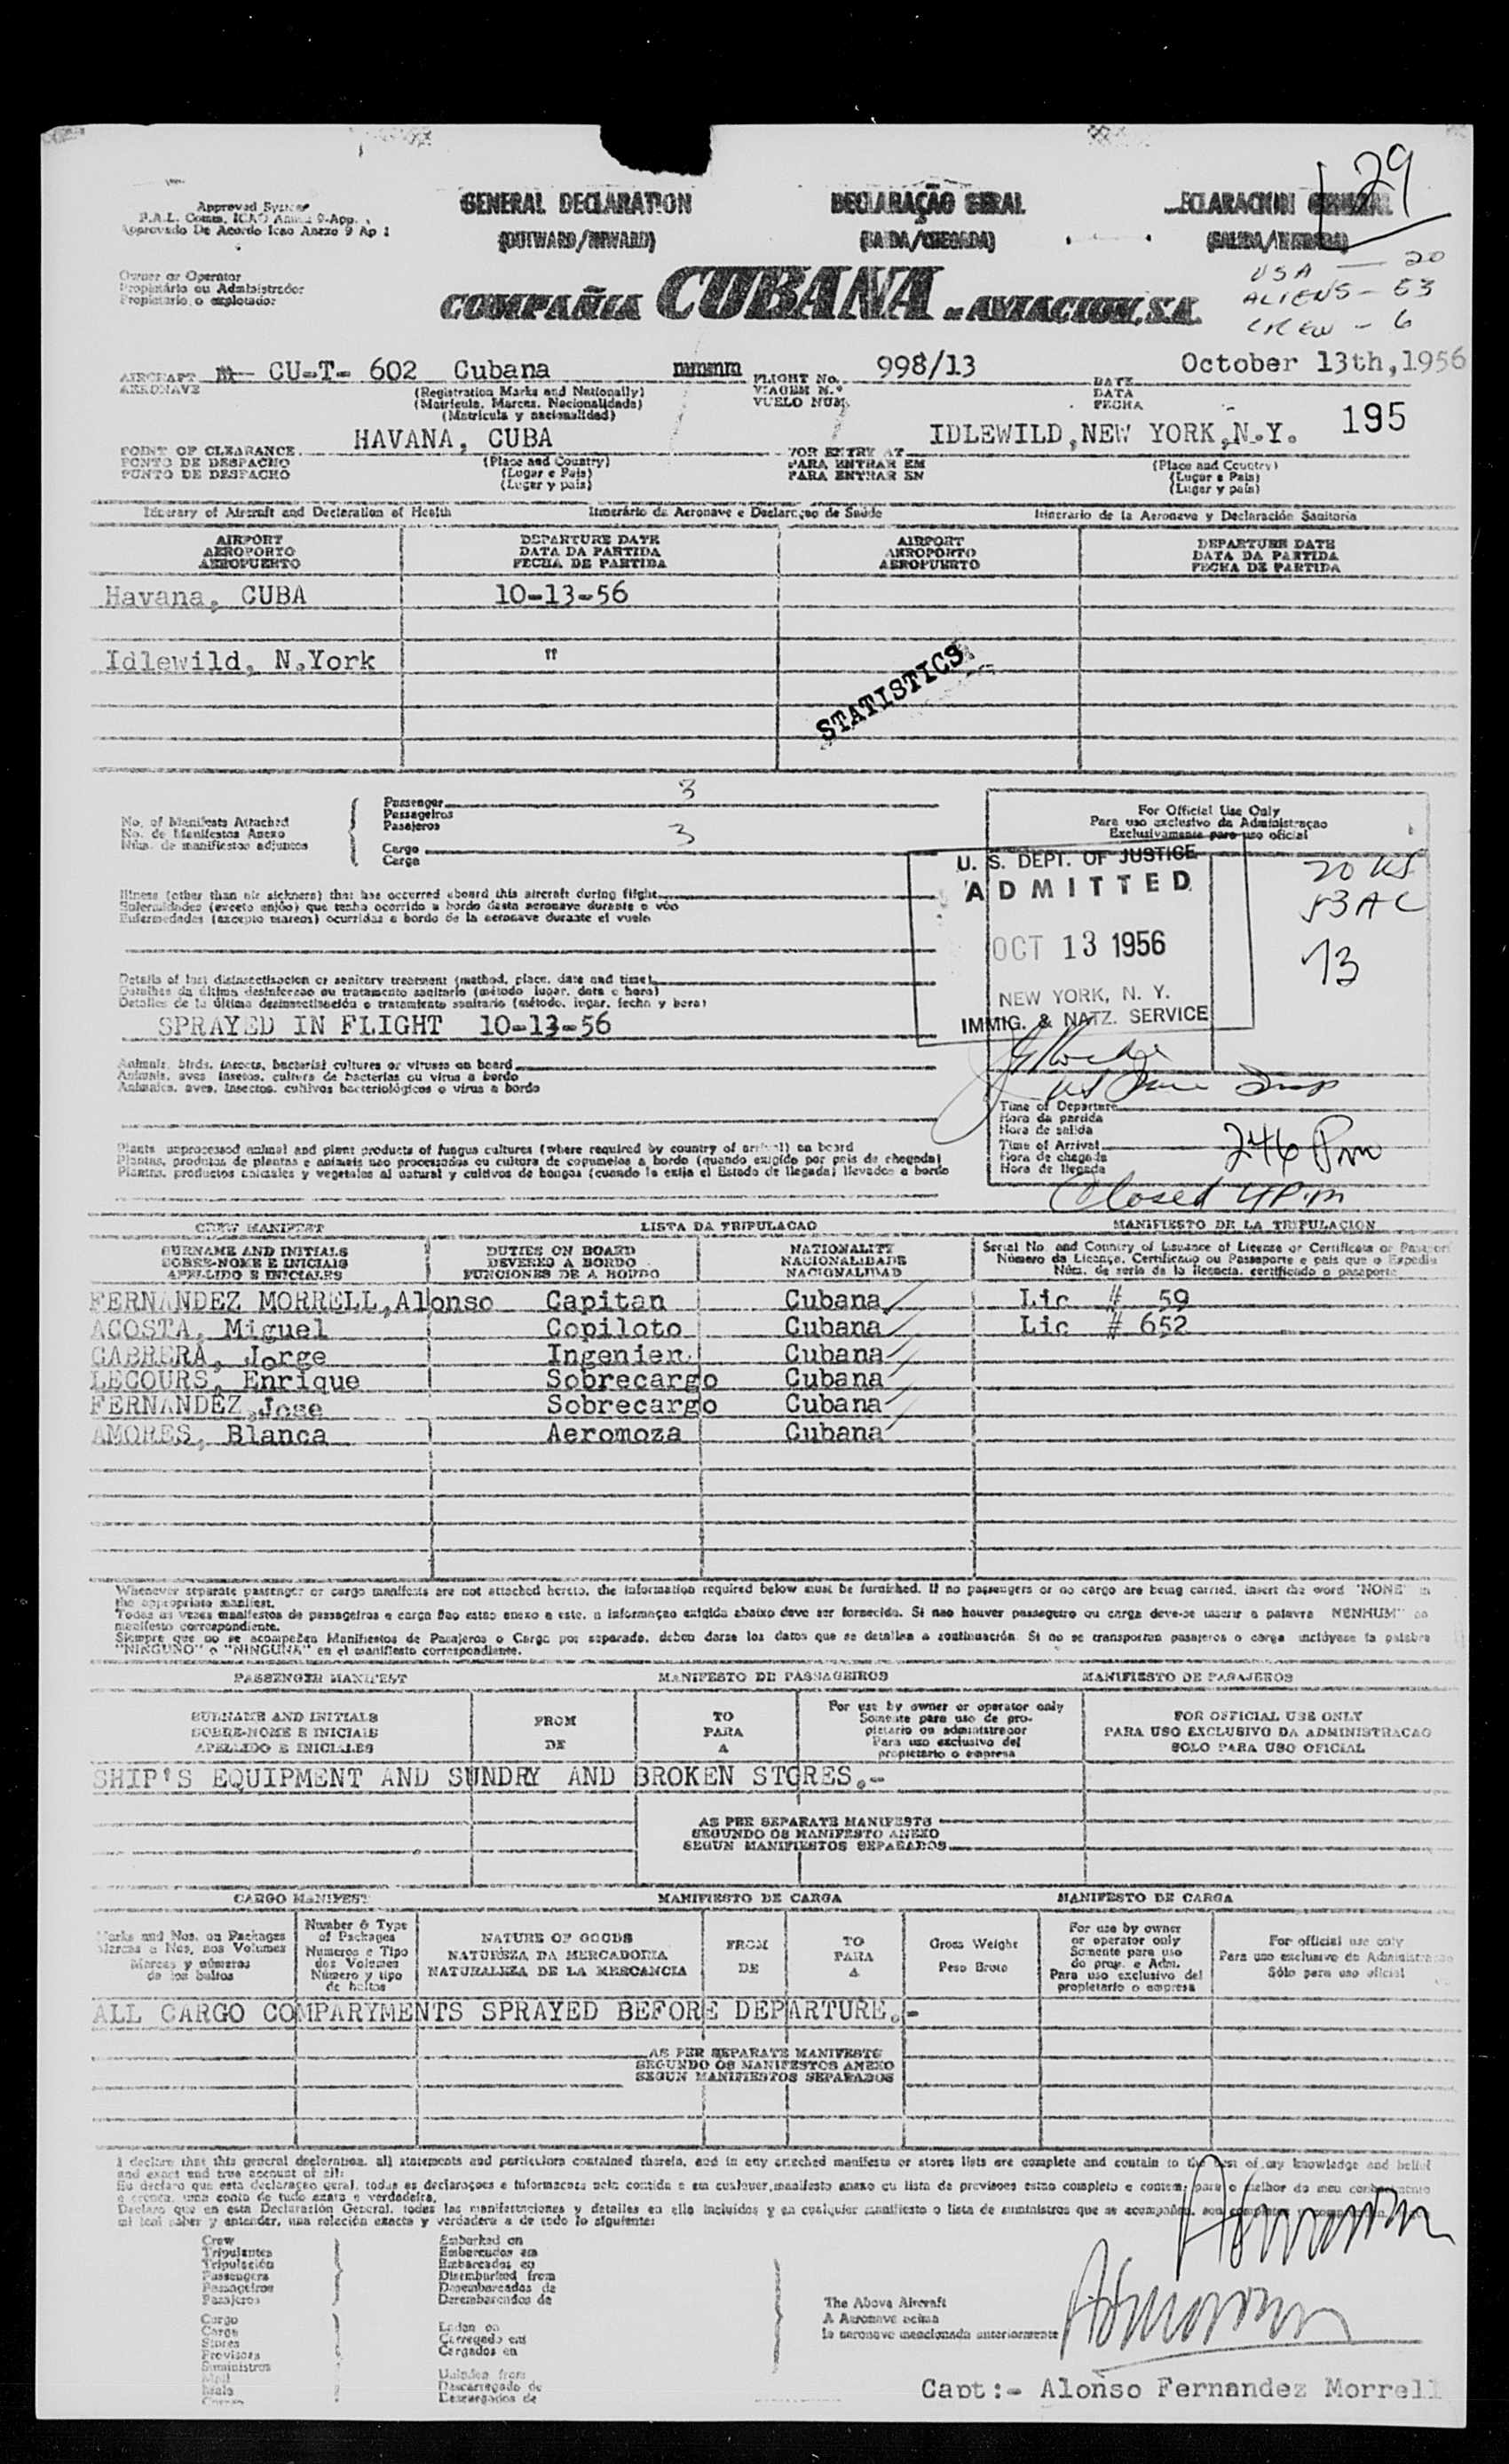 29
Approved System
P.A.L. Comm. ICAO Annex 9-App.
Approvado De Acordo Icao Anexo 9 Ap 1
GENERAL DECLARATION
(OUTWARD/INWARD)
DECLARAÇÃO GERAL
(SAIDA/CHEGADA)
ECLARACION GENERAL
(SALIDA/ENTRADA)
Owner or Operator
Proprietário ou Administrador
Propietario o explotador
COMPAÑIA CUBANA DE AVIACION, S.A.
USA — 20
ALIENS - 53
CREW - 6
AIRCRAFT CU-T- 602 Cubana
AERONAVE
(Registration Marks and Nationally)
(Matrícula, Marcas, Nacionalidade)
(Matrícula y nacionalidad)
FLIGHT No. 998/13
VIAGEM N.º
VUELO NUM.
October 13th, 1956
DATE
DATA
FECHA
195
POINT OF CLEARANCE HAVANA, CUBA
PONTO DE DESPACHO
PUNTO DE DESPACHO
(Place and Country)
(Lugar e País)
(Lugar y país)
FOR ENTRY AT IDLEWILD, NEW YORK, N.Y.
PARA ENTRAR EM
PARA ENTRAR EN
(Place and Country)
(Lugar e País)
(Lugar y país)
Itinerary of Aircraft and Declaration of Health
Itinerário da Aeronave e Declaraçao de Saúde
Itinerario de la Aeronave y Declaración Sanitaria
AIRPORT
AEROPORTO
AEROPUERTO
DEPARTURE DATE
DATA DA PARTIDA
FECHA DE PARTIDA
AIRPORT
AEROPORTO
AEROPUERTO
DEPARTURE DATE
DATA DA PARTIDA
FECHA DE PARTIDA
Havana, CUBA 10-13-56
Idlewild, N.York "
STATISTICS
No. of Manifests Attached
No. de Manifestos Anexo
Núm. de manifiestos adjuntos
Passenger 3
Passageiros
Pasajeros
Cargo 3
Carga
For Official Use Only
Para uso exclusivo da Administraçao
Exclusivamente para uso oficial
U. S. DEPT. OF JUSTICE
ADMITTED
OCT 13 1956
NEW YORK, N. Y.
IMMIG. & NATZ. SERVICE
20 US
53 AC
73
Illness (other than air sickness) that has occurred aboard this aircraft during flight
Enfermidades (exceto enjôo) que tenha ocorrido a bordo desta aeronave durante o vôo
Enfermedades (excepto mareos) ocurridas a bordo de la aeronave durante el vuelo
Details of last disinsectisacion or sanitary treatment (method, place, date and time)
Detalhes da última desinfeccao ou tratamento sanitario (método lugar, data e hora)
Detalles de la última desinsectisación o tratamiento sanitario (método, lugar, fecha y hora)
SPRAYED IN FLIGHT 10-13-56
Animals, birds, insects, bacterial cultures or viruses on board
Animais, aves insetos, cultura de bacterias ou virus a bordo
Animales, aves, insectos, cultivos bacteriológicos o virus a bordo
Time of Departure
Hora da partida
Hora de salida
Time of Arrival 246 Pm
Hora de chegada
Hora de llegada
Closed 4 P.m
Plants unprocessed animal and plant products of fungus cultures (where required by country of arrival) on board
Plantas, produtos de plantas e animais nao processados ou cultura de cogumelos a bordo (quando exigido por pais de chegada)
Plantas, productos animales y vegetales al natural y cultivos de hongos (cuando lo exija el Estado de llegada) llevados a bordo
CREW MANIFEST
LISTA DA TRIPULACAO
MANIFIESTO DE LA TRIPULACION
SURNAME AND INITIALS
SOBRE-NOME E INICIAIS
APELLIDO E INICIALES
DUTIES ON BOARD
DEVERES A BORDO
FUNCIONES DE A BORDO
NATIONALITY
NACIONALIDADE
NACIONALIDAD
Serial No. and Country of Issuance of License or Certificate or Passport
Número da Licença, Certificado ou Passaporte e pais que o Expediu
Núm. de serie de la licencia, certificado o pasaporte
FERNANDEZ MORRELL, Alonso Capitan Cubana Lic # 59
ACOSTA, Miguel Copiloto Cubana Lic # 652
CABRERA, Jorge Ingenier Cubana
LECOURS, Enrique Sobrecargo Cubana
FERNANDEZ, Jose Sobrecargo Cubana
AMORES, Blanca Aeromoza Cubana
Whenever separate passenger or cargo manifests are not attached hereto, the information required below must be furnished. If no passengers or no cargo are being carried, insert the word "NONE" in
the appropriate manifest.
Todas as vezes manifestos de passageiros e carga nao estao anexo a este, a informaçao exigida abaixo deve ser fornecida. Si nao houver passageiro ou carga deve-se inserir a palavra NENHUM" no
manifesto correspondiente.
Siempre que no se acompañen Manifiestos de Pasajeros o Carga por separado, deben darse los datos que se detallan a continuación. Si no se transportan pasajeros o carga inclúyese la palabra
"NINGUNO" o "NINGUNA" en el manifiesto correspondiente.
PASSENGER MANIFEST
MANIFESTO DE PASSAGEIROS
MANIFIESTO DE PASAJEROS
SURNAME AND INITIALS
SOBRE-NOME E INICIAIS
APELLIDO E INICIALES
FROM
DE
TO
PARA
A
For use by owner or operator only
Somente para uso de pro-
pietario ou administrador
Para uso exclusivo del
propietario o empresa
FOR OFFICIAL USE ONLY
PARA USO EXCLUSIVO DA ADMINISTRACAO
SOLO PARA USO OFICIAL
SHIP'S EQUIPMENT AND SUNDRY AND BROKEN STORES.-
AS PER SEPARATE MANIFESTS
SEGUNDO OS MANIFESTO ANEXO
SEGUN MANIFIESTOS SEPARADOS
CARGO MANIFEST
MANIFIESTO DE CARGA
MANIFESTO DE CARGA
Marks and Nos. on Packages
Marcas e Nos. nos Volumes
Marcas y números
de los bultos
Number & Type
of Packages
Numeros e Tipo
dos Volumes
Número y tipo
de bultos
NATURE OF GOODS
NATUREZA DA MERCADORIA
NATURALEZA DE LA MERCANCIA
FROM
DE
TO
PARA
A
Gross Weight
Peso Bruto
For use by owner
or operator only
Somente para uso
do prop. e Adm.
Para uso exclusivo del
propietario o empresa
For official use only
Para uso exclusivo da Administracao
Sólo para uso oficial
ALL CARGO COMPARYMENTS SPRAYED BEFORE DEPARTURE.-
AS PER SEPARATE MANIFESTS
SEGUNDO OS MANIFESTOS ANEXO
SEGUN MANIFIESTOS SEPARADOS
I declare that this general declaration, all statements and particulars contained therein, and in any attached manifests or stores lists are complete and contain to the best of my knowledge and belief
and exact and true account of all:
Eu declaro que esta declaraçao geral, todas as declaraçoes e informacoes nela contida e em cualquer manifesto anexo ou lista de previsoes estao completo e contem, para o melhor do meu conhecimento
e crenca, uma conta de tudo exata e verdadeira.
Declaro que en esta Declaración General, todas las manifestaciones y detalles en ella incluidos y en cualquier manifiesto o lista de suministros que se acompañan, son completos
mi leal saber y entender, una relación exacta y verdadera a de todo lo siguiente:
Crew
Tripulantes
Tripulación
Passengers
Passageiros
Pasajeros
Embarked on
Embarcados em
Embarcados en
Disembarked from
Desembarcados de
Desembarcados de
Cargo
Carga
Stores
Previsoes
Suministros
Mail
Mala
Correo
Laden on
Carregado em
Cargados en
Unladen from
Descarregado de
Descargados de
The Above Aircraft
A Aeronave acima
la aeronave mencionada anteriormente
Capt:- Alonso Fernandez Morrell